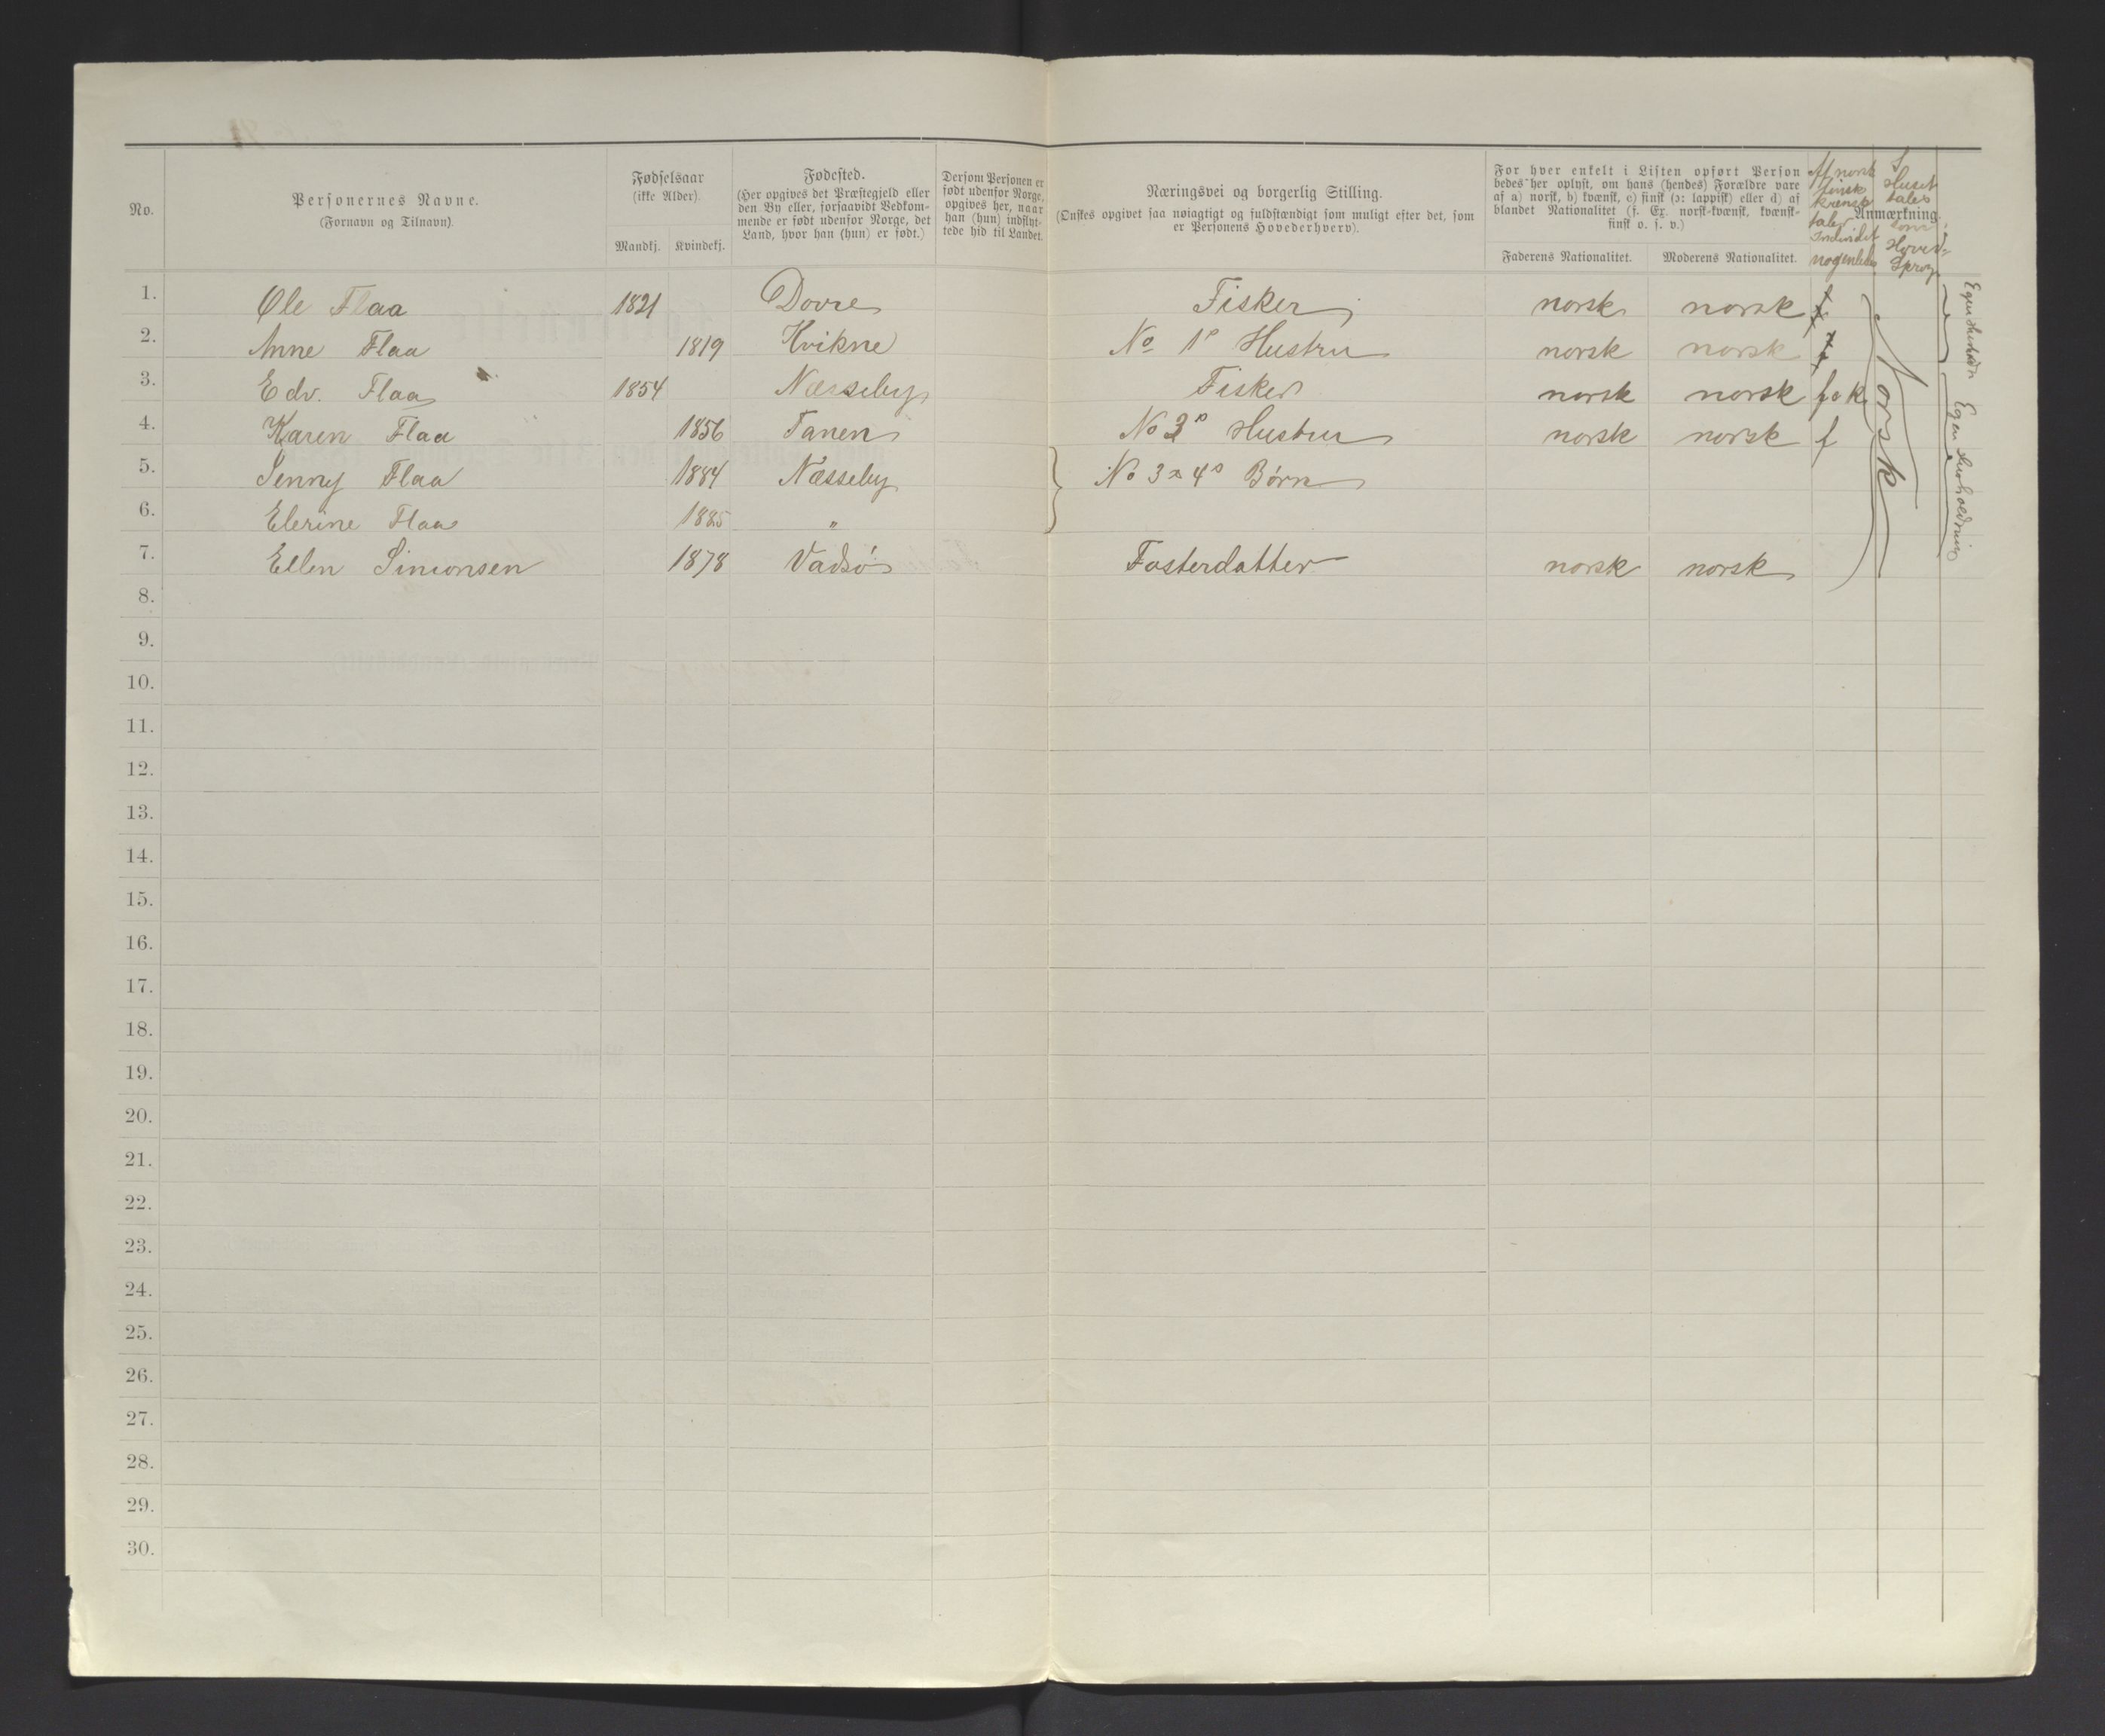 No.
Personernes Navne.
(Fornavn og Tilnavn).
Fødselsaar
(ikke Alder).
Mandkj. Kvindekj.
Fødested.
(Her opgives det Præstegjeld eller
den By eller, forsaavidt Vedkom-
mende er født udenfor Norge, det
Land, hvor han (hun) er født.)
Dersom Personen er
født udenfor Norge,
opgives her, naar
han (hun) indflyt-
tede hid til Landet.
Næringsvei og borgerlig Stilling.
(Ønskes opgivet saa nøiagtigt og fuldstændigt som muligt efter det, som
er Personens Hovederhverv).
For hver enkelt i Listen opført Person
bedes her oplyst, om hans (hendes) Forældre vare
af a) norsk, b) kvænsk, c) finsk (ɔ: lappisk) eller d) af
blandet Nationalitet (f. Ex. norsk-kvænsk, kvænsk-
finsk o. s. v.)
Faderens Nationalitet. Moderens Nationalitet.
Anmærkning.
Af norsk
finsk
kvensk
taler
Individet
nogenledes
I
Huset
tales
som
Hoved-
Sprog
1. Ole Flaa 1821 Dovre Fisker norsk norsk
2. Anne Flaa 1819 Kvikne No 1s Hustru norsk norsk
3. Edv. Flaa 1854 Næsseby Fisker norsk norsk f o k
4. Karen Flaa 1856 Tanen No 3s Hustru norsk norsk f
5. Jenny Flaa 1884 Næsseby No 3 & 4s Børn
6. Elerine Flaa 1885 "
7. Ellen Simonsen 1878 Vadsø Fosterdatter norsk norsk
Norsk
Egen Husholdn
Egen Husholdning
8.
9.
10.
11.
12.
13.
14.
15.
16.
17.
18.
19.
20.
21.
22.
23.
24.
25.
26.
27.
28.
29.
30.